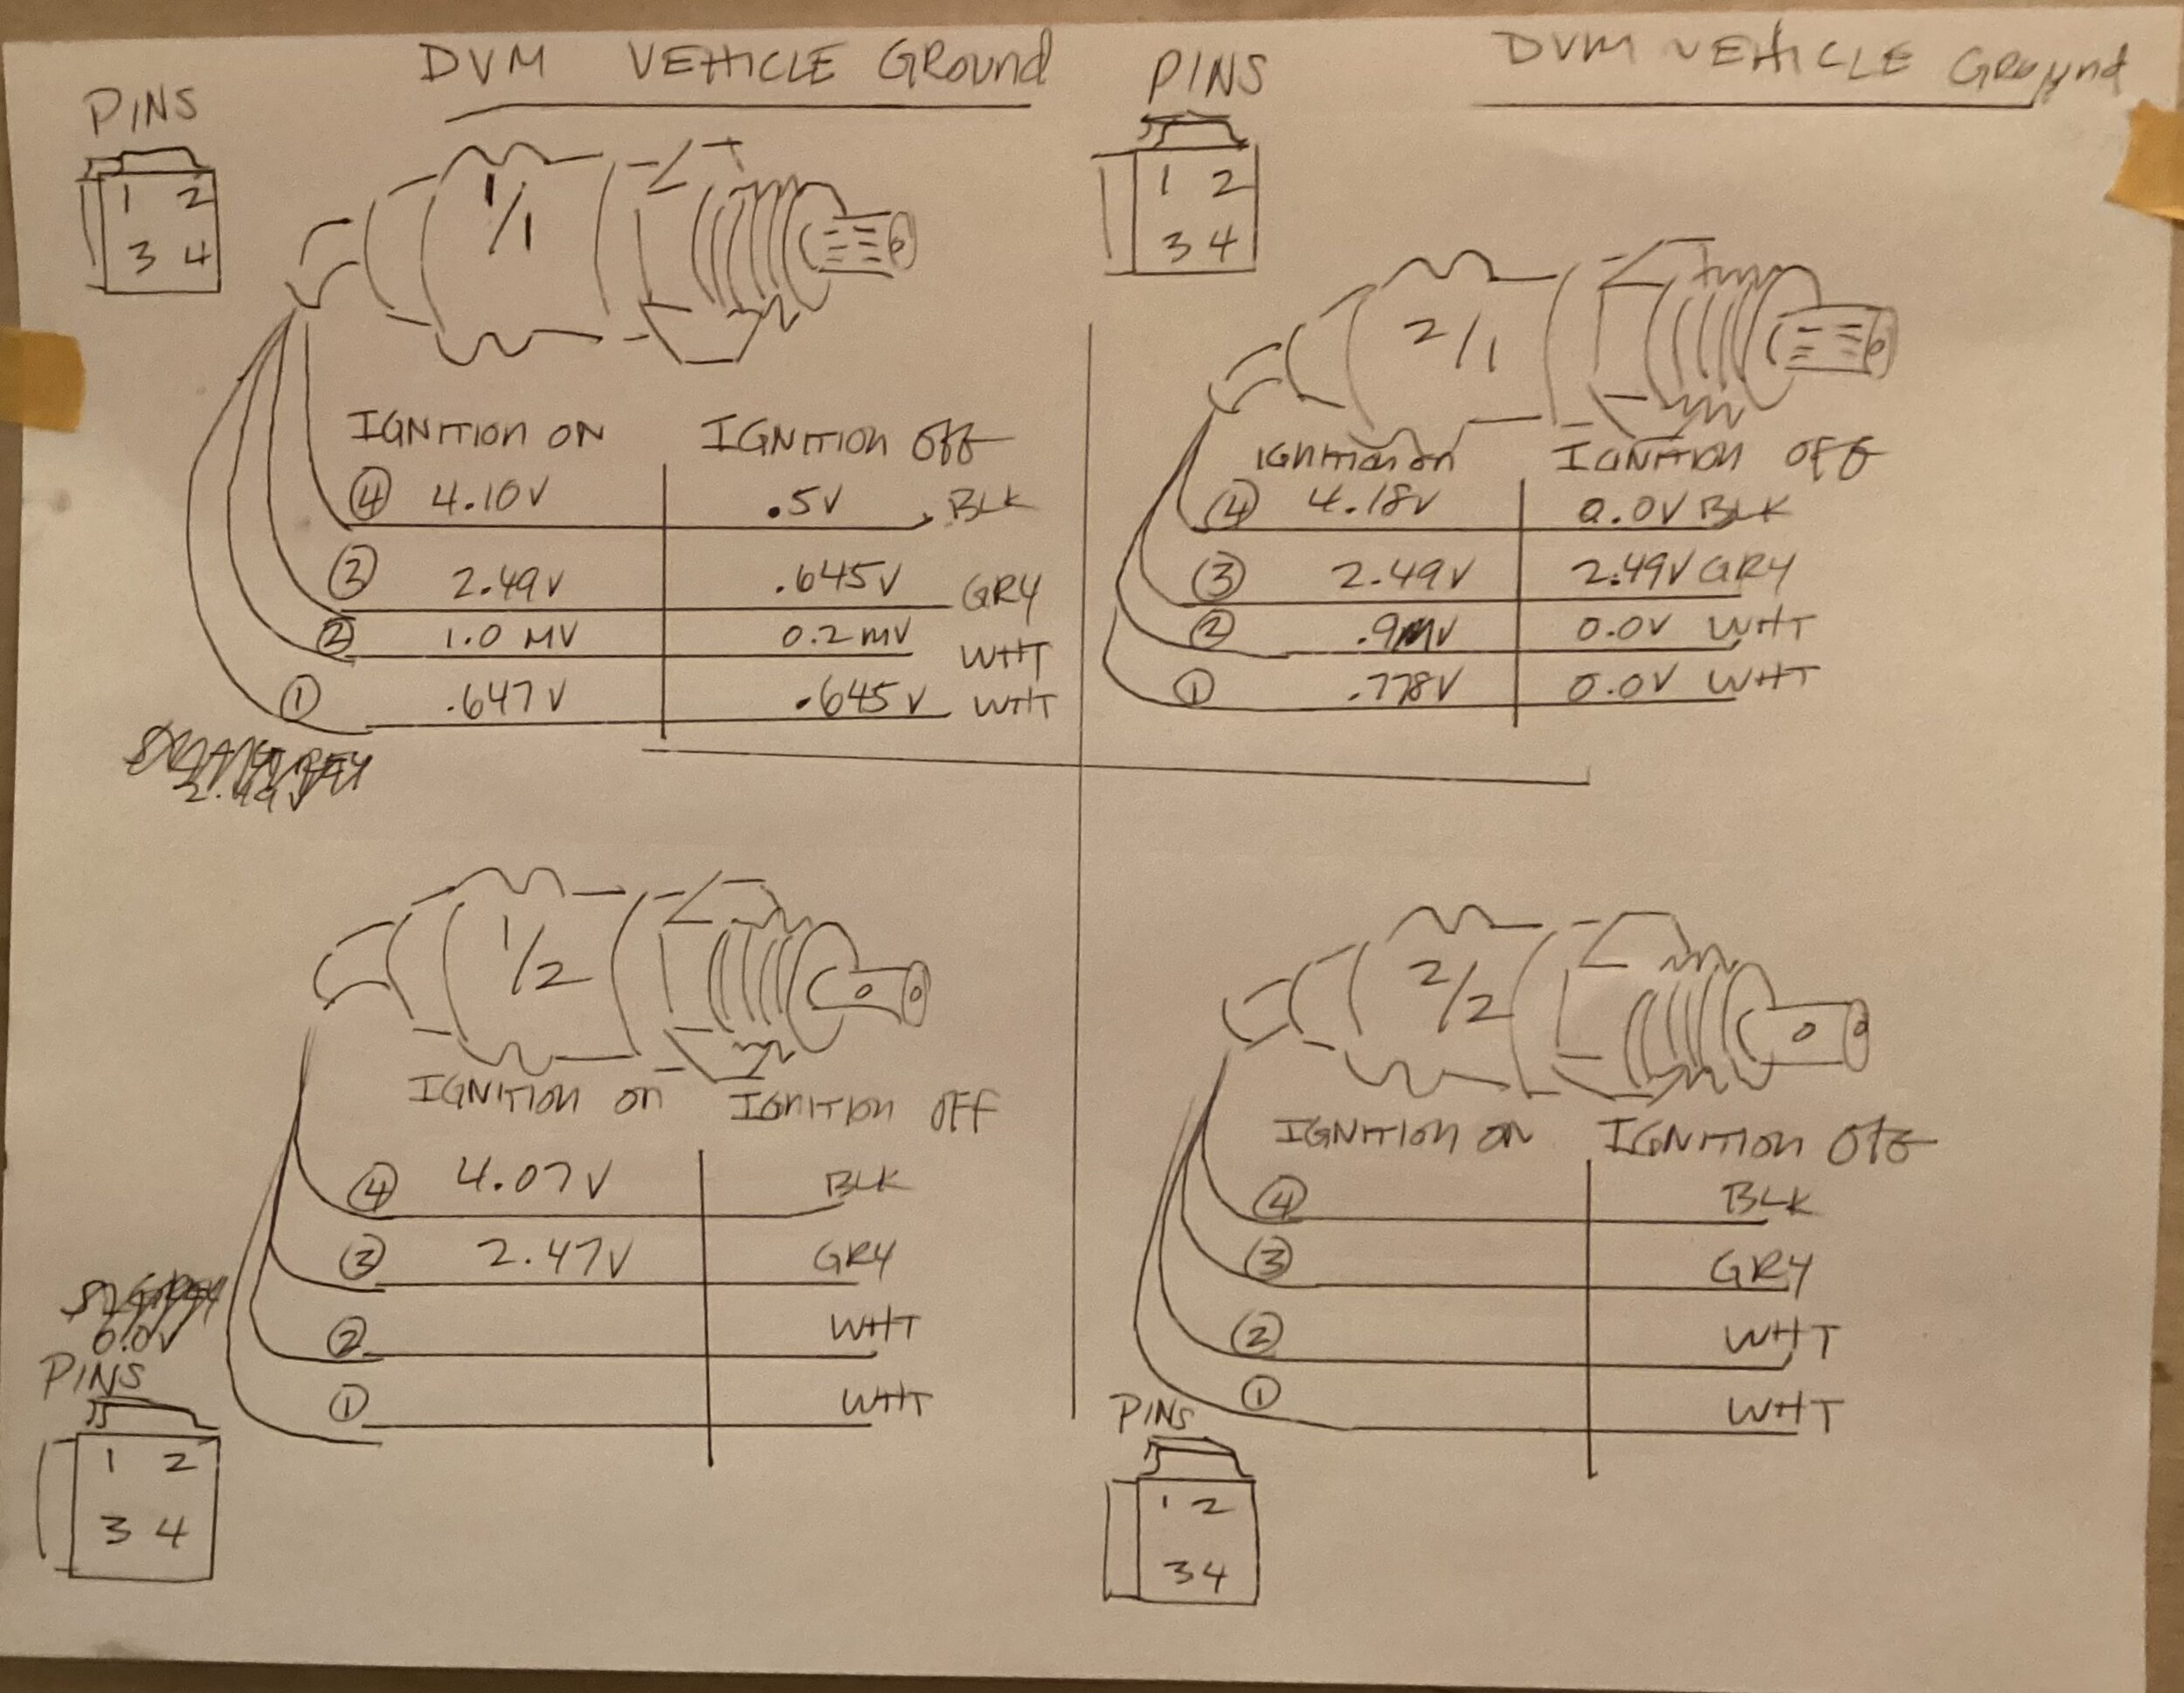 DVM VEHICLE GROUND
PINS
1 2
3 4
1/1
IGNITION ON IGNITION OFF
④ 4.10V .5V BLK
③ 2.49V .645V GRY
② 1.0 MV 0.2mV WHT
① .647V .645V WHT
DVM VEHICLE GROUND
PINS
1 2
3 4
2/1
IGNITION ON IGNITION OFF
④ 4.18V 0.0V BLK
③ 2.49V 2.49V GRY
② .9MV 0.0V WHT
① .778V 0.0V WHT
1/2
IGNITION ON IGNITION OFF
④ 4.07V BLK
③ 2.47V GRY
② WHT
① WHT
0.0V
PINS
1 2
3 4
2/2
IGNITION ON IGNITION OFF
④ BLK
③ GRY
② WHT
① WHT
PINS
1 2
3 4